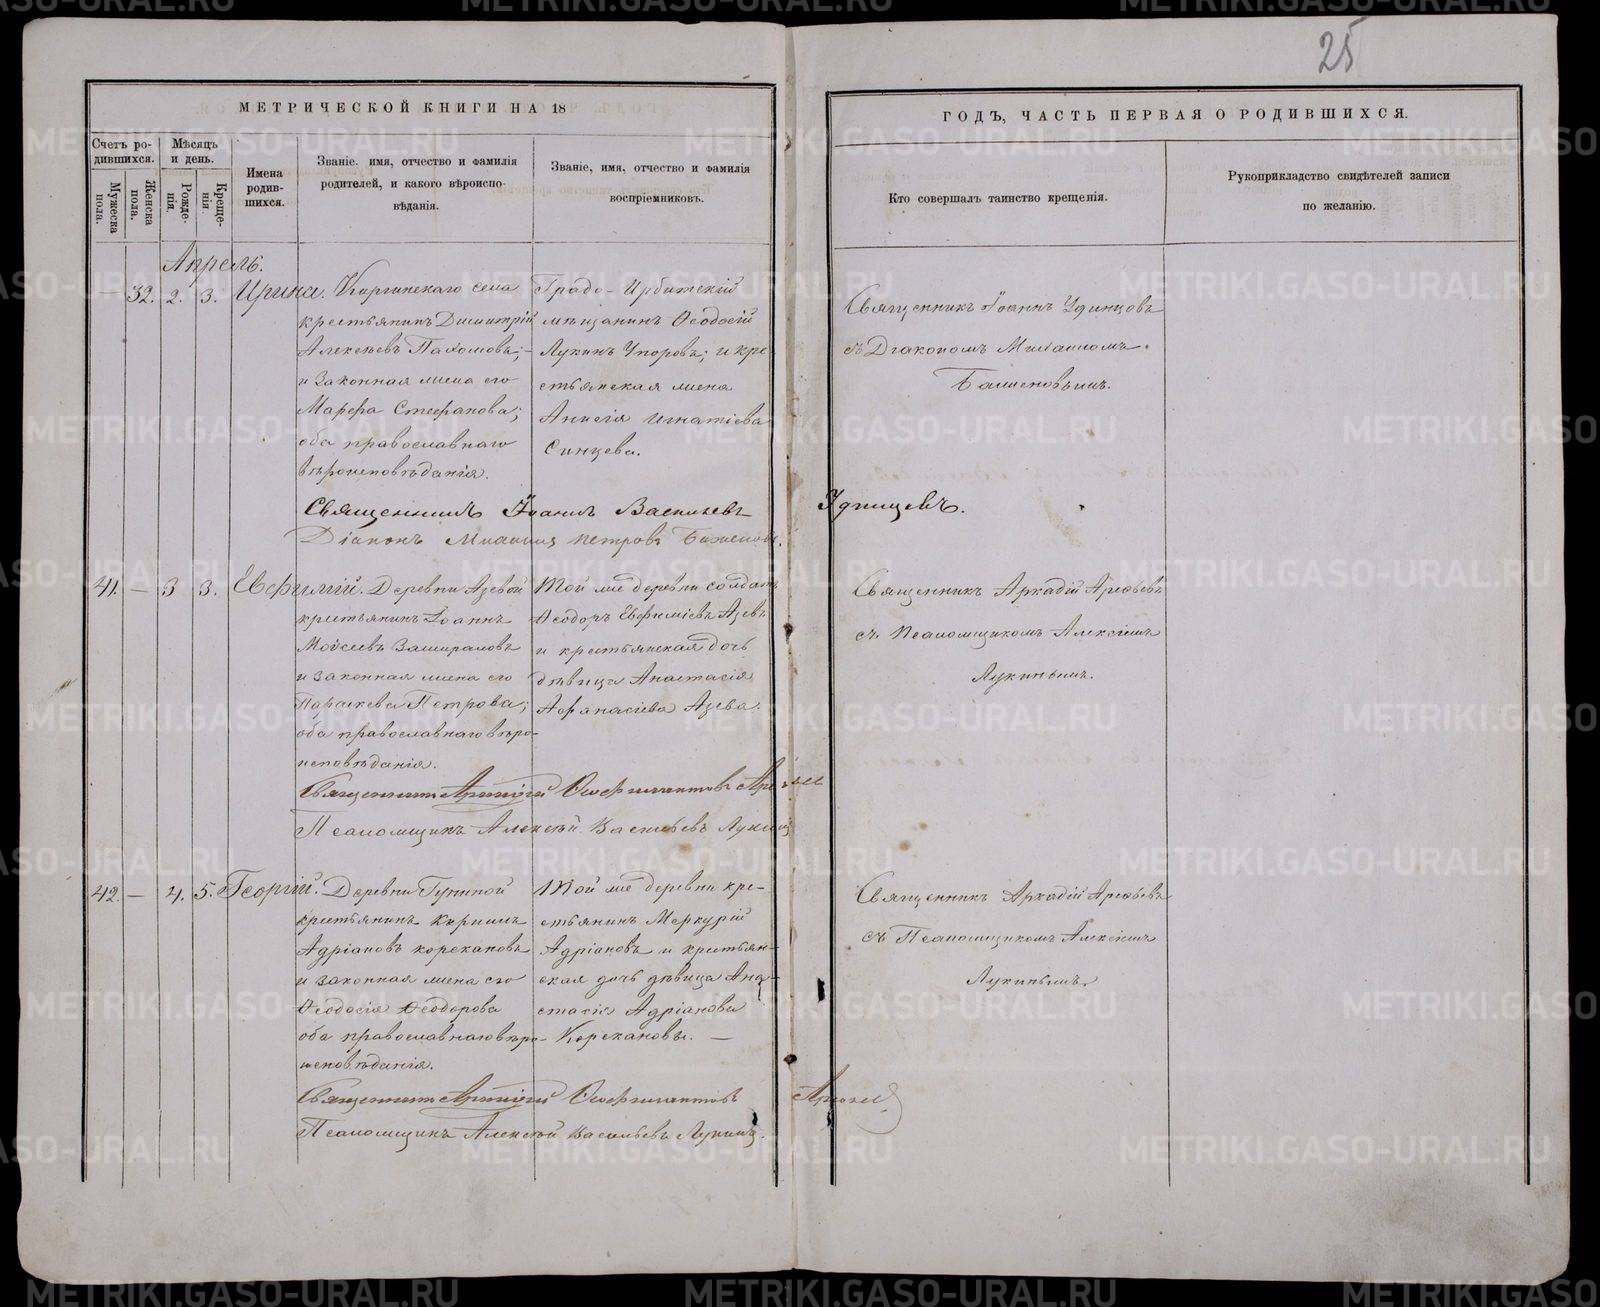 25
МЕТРИЧЕСКОЙ КНИГИ НА 18
ГОДЪ, ЧАСТЬ ПЕРВАЯ О РОДИВШИХСЯ.
Счетъ ро-
дившихся.
Мужеска
пола.
Женска
пола.
Мѣсяцъ
и день.
Рожде-
нія.
Креще-
нія.
Имена
родив-
шихся.
Званіе. имя, отчество и фамилія
родителей, и какого вѣроиспо-
вѣданія.
Званіе, имя, отчество и фамилія
воспріемниковъ.
Кто совершалъ таинство крещенія.
Рукоприкладство свидѣтелей записи
по желанію.
Апрель.
— 32. 2. 3. Ирина.
Киргинскаго села
крестьянинъ Димитрій
Алексѣевъ Пахомовъ;
и законная жена его
Марфа Стефанова;
оба православнаго
вѣроисповѣданія.
Градо-Ирбитскій
мѣщанинъ Ѳеодосій
Лукинъ Упоровъ; и кре
стьянская жена
Анисія Игнатіева
Синцева.
Священникъ Іоаннъ Удинцовъ
съ Діакономъ Михаиломъ
Баженовымъ.
Священникъ Іоаннъ Васильевъ Удинцевъ.
Діаконъ Михаилъ Петровъ Баженовъ.
41. — 3 3. Евфимій.
Деревни Азевой
крестьянинъ Іоаннъ
Моѵсеевъ Замираловъ
и законная жена его
Параскева Петрова;
оба православнаго вѣро-
исповѣданія.
Той же деревни солдатъ
Ѳеодоръ Евфиміевъ Азевъ
и крестьянская дочь
дѣвица Анастасія
Афанасіева Азева.
Священникъ Аркадій Арефьевъ
съ Псаломщикомъ Алексіемъ
Лукинымъ.
Священникъ Аркадій Ѳеофилактовъ
Псаломщикъ Алексѣй Васильевъ Лукинъ
42. — 4. 5. Георгій.
Деревни
крестьянинъ Кириллъ
Адріановъ Корекановъ
и законная жена его
Ѳеодосія Ѳеодорова
оба православнаго вѣро-
исповѣданія.
Той же деревни кре-
стьянинъ Меркурій
Адріановъ и крестьян-
ская дочь дѣвица Ана-
стасія Адріанова
Корекановы. —
Священникъ Аркадій Арефьевъ
съ Псаломщикомъ Алексіемъ
Лукинымъ.
Священникъ Аркадій Ѳеофилактовъ
Псаломщикъ Алексѣй Васильевъ Лукинъ.
METRIKI.GASO-URAL.RU